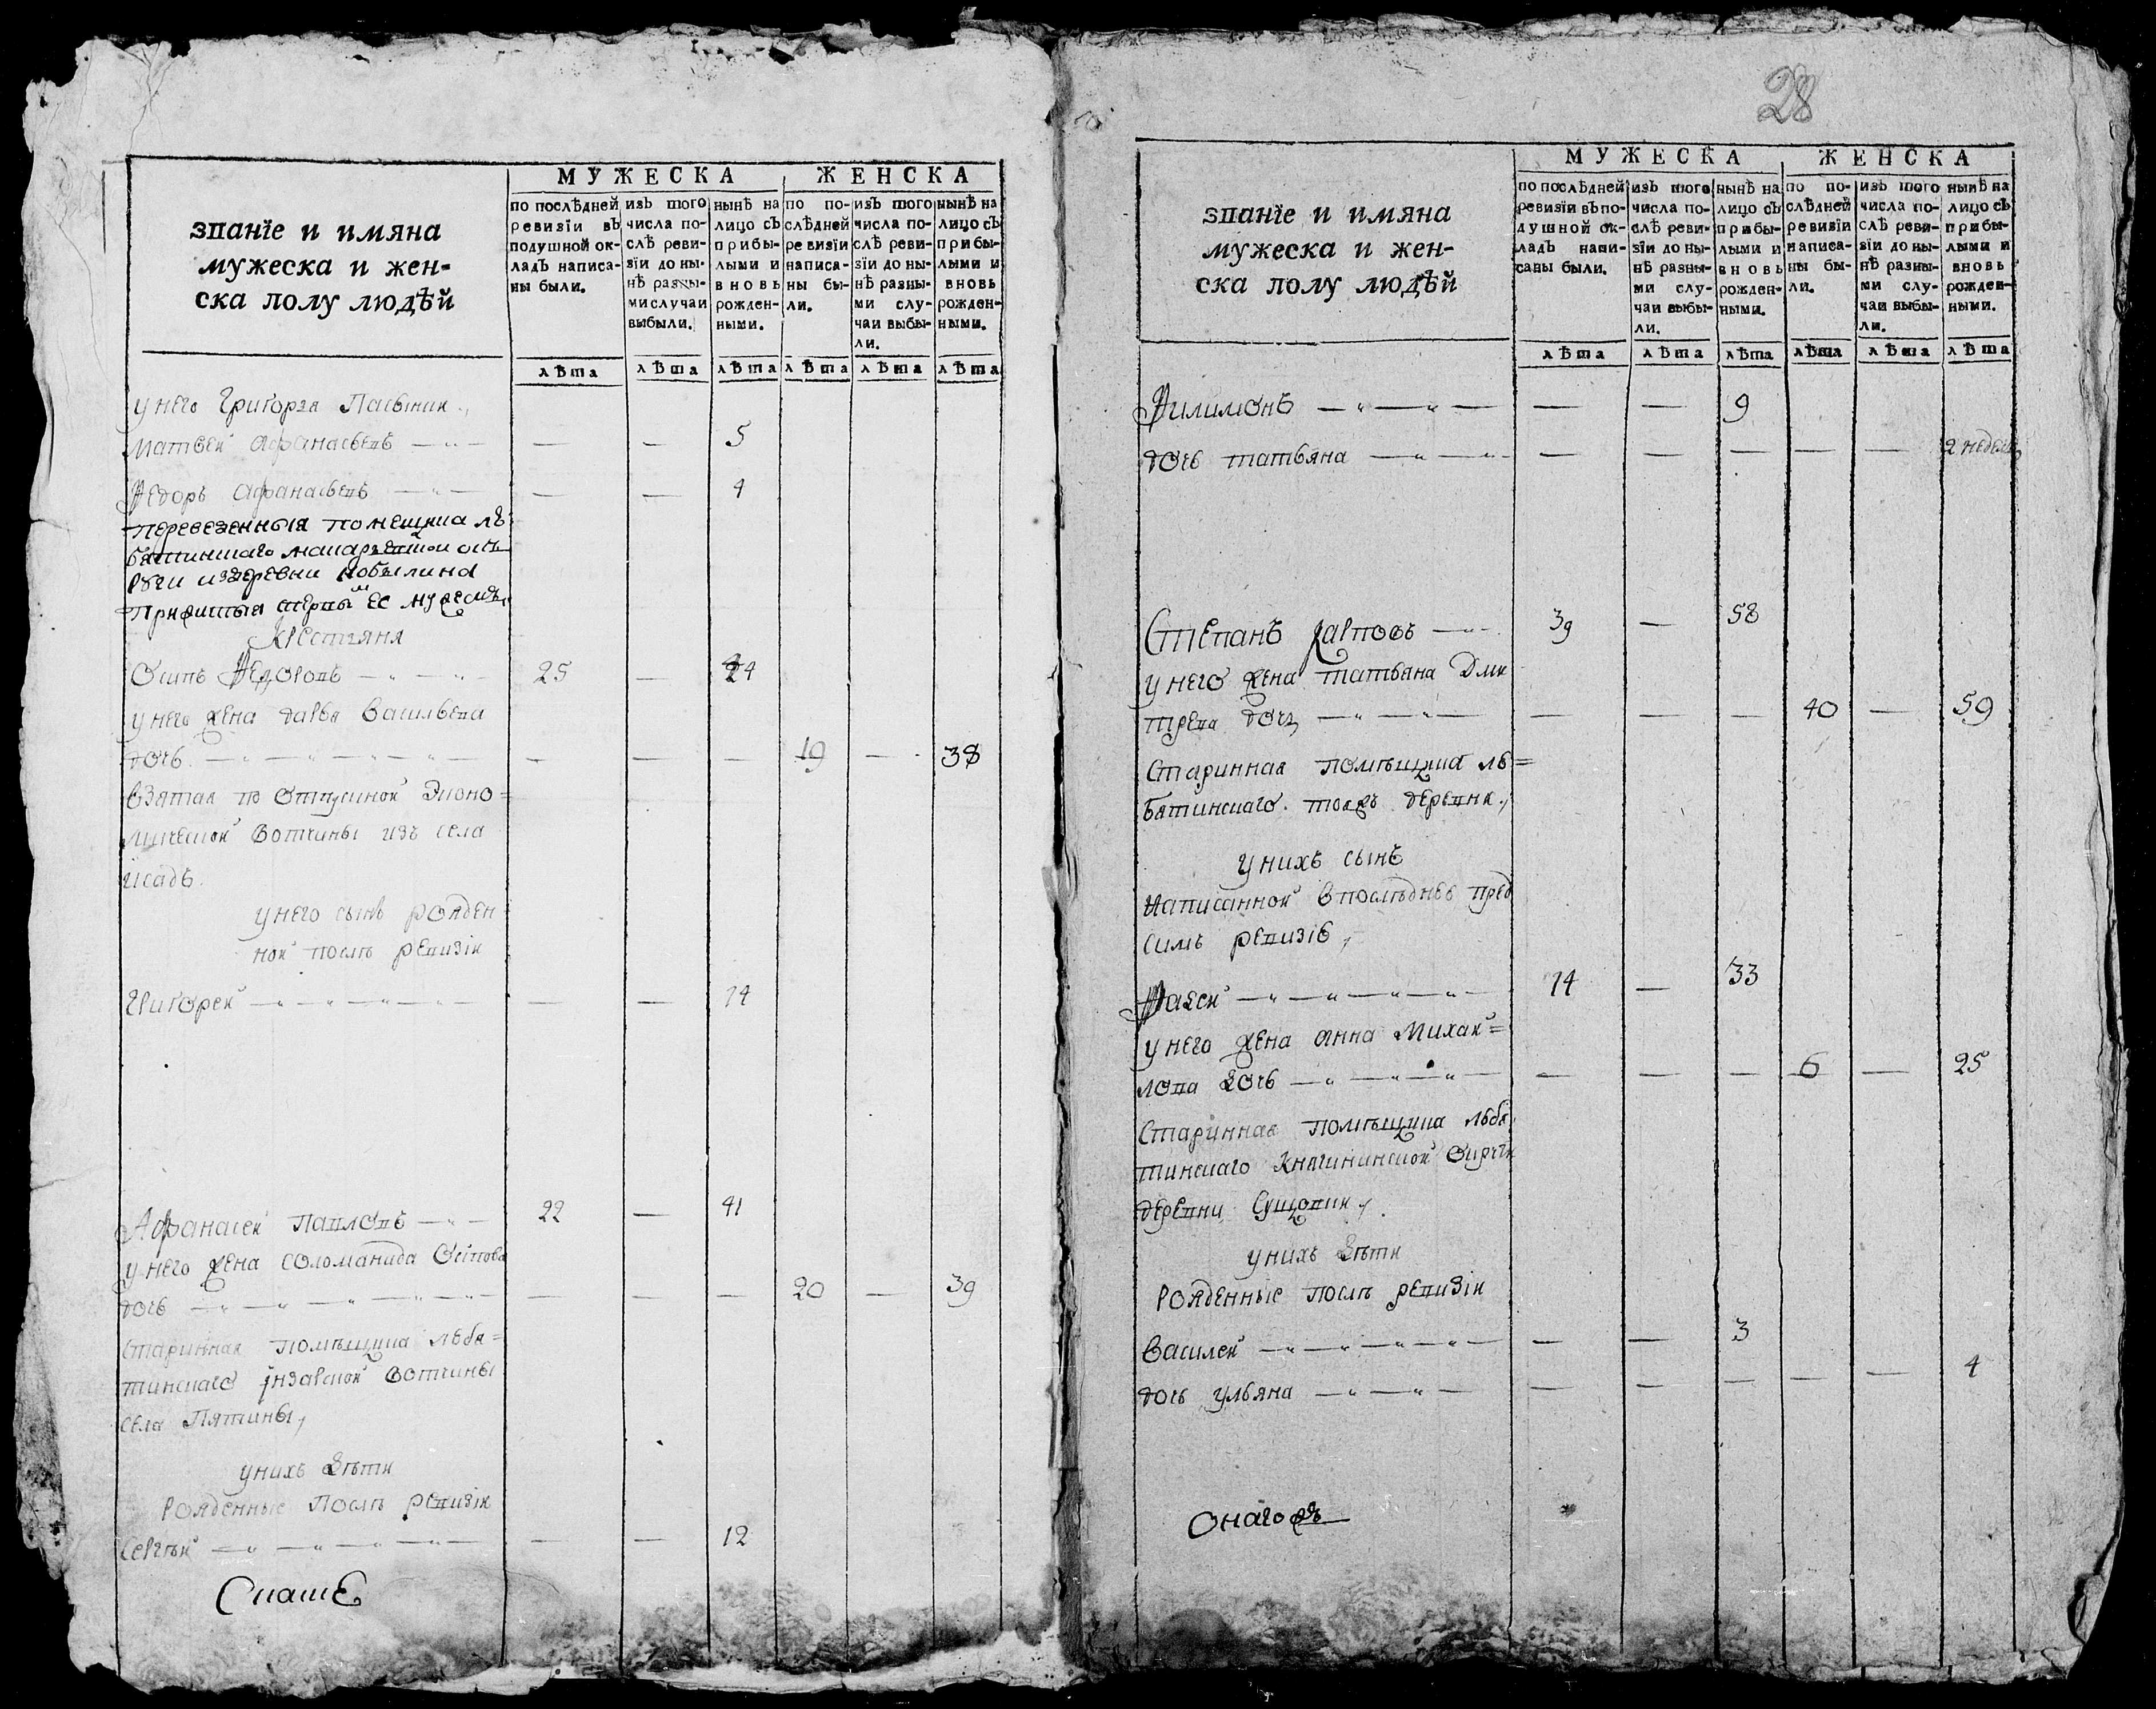 званїе и имяна
мужеска и жен-
ска полу людѣй
МУЖЕСКА
ЖЕНСКА
по послѣдней ревизїи въ подушной ок- ладъ написа- ны были.
изъ того числа по- слѣ реви- зїи до ны- нѣ разны- ми случаи выбыли.
нынѣ на лицо съ прибы- лыми и вновь рожден- ными.
по по- слѣдней ревизїи написа- ны бы- ли.
изъ того числа по- слѣ реви- зїи до ны- нѣ разны- ми слу- чаи выбы- ли.
нынѣ на лицо съ прибы- лыми и вновь рожден- ными.
лѣта лѣта лѣта лѣта лѣта лѣта
у него Григорья Пасынки
Матвей Афанасьевъ — — 5
Федоръ Афанасьевъ — — 4
перевезенныя помещика ль
бятинскаго макарьевской ок
руги из деревни кобылина
Крестьяня
Осипъ Федоровъ 25 — 44
у него жена дарья Васильева
дочь — — — 19 — 38
взятая по отпускной Эконо=
мической вотчины изъ села
Исадъ
у него сынъ рожден
ной послѣ ревизіи
Григорей — — 14
Афанасей Павловъ 22 — 41
у него жена соломанида Осипова
дочь — — — 20 — 39
старинная помѣщика льбя=
тинскаго інзарской вотчины
села Пятины,
у нихъ дѣти
рожденные послѣ ревизіи
Сергѣй — — 12
Спаше
28
званїе и имяна
мужеска и жен-
ска полу людѣй
МУЖЕСКА
ЖЕНСКА
по послѣдней ревизїи въ по- душной ок- ладъ напи- саны были.
изъ того числа по- слѣ реви- зїи до ны- нѣ разны- ми слу- чаи выбы- ли.
нынѣ на лицо съ прибы- лыми и вновь рожден- ными.
по по- слѣдней ревизїи написа- ны бы- ли.
изъ того числа по- слѣ реви- зїи до ны- нѣ разны- ми слу- чаи выбы- ли.
нынѣ на лицо съ прибы- лыми и вновь рожден- ными.
лѣта лѣта лѣта лѣта лѣта лѣта
Филимонъ — — 9
дочь татьяна — — — — — 2 недель
Степанъ Карповъ 39 — 58
у него жена татьяна Дми
трева дочь — — — 40 — 59
старинная помѣщика ль=
бятинскаго тояжъ деревни,
у нихъ сынъ
написанной в послѣднею пред
симъ ревизіѣ,
Фадей 14 — 33
у него жена анна Михай=
лова дочь — — — 6 — 25
старинная помѣщика льбя
тинскаго Княгининской округи
деревни
у нихъ дѣти
рожденные послѣ ревизіи
Василей — — 3
дочь ульяна — — — — — 4
онагожъ